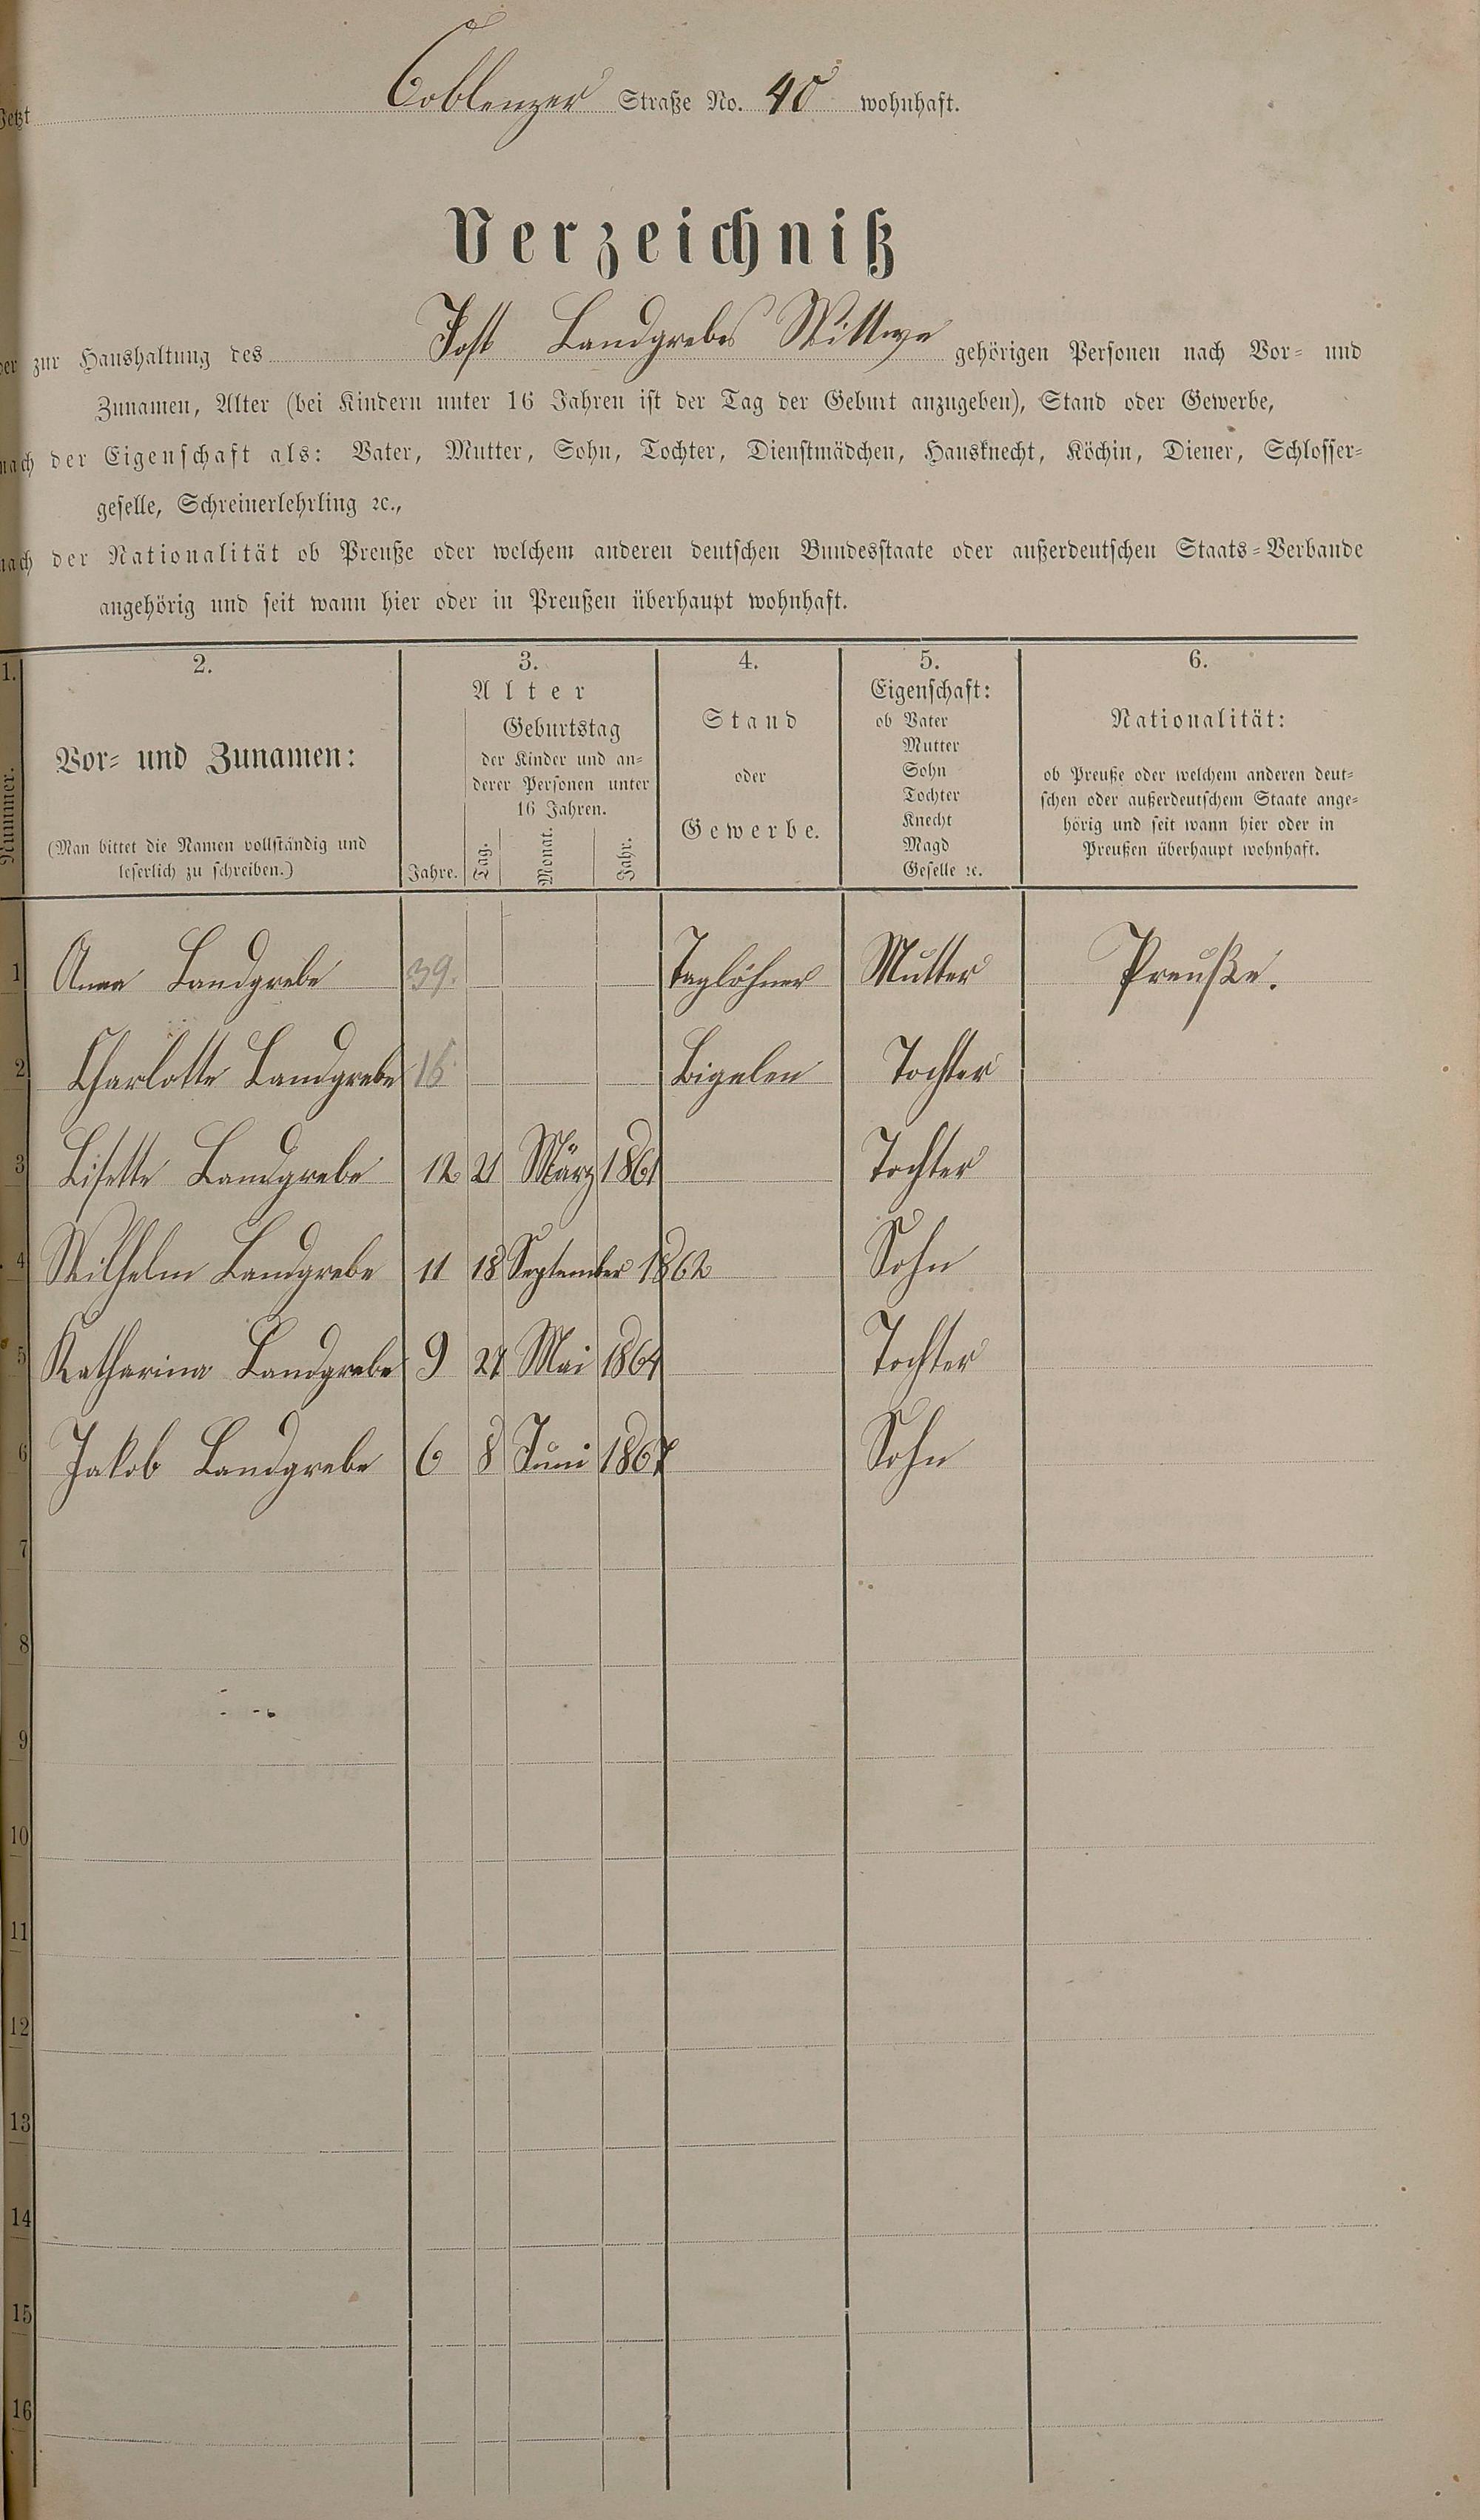 Jetzt Coblenzer Straße No. 40 wohnhaft.
Verzeichniß
der zur Haushaltung des Jost Landgrebes Wittwe gehörigen Personen nach Vor- und
Zunamen, Alter (bei Kindern unter 16 Jahren ist der Tag der Geburt anzugeben), Stand oder Gewerbe,
nach der Eigenschaft als: Vater, Mutter, Sohn, Tochter, Dienstmädchen, Hausknecht, Köchin, Diener, Schlosser-
geselle, Schreinerlehrling ꝛc.,
nach der Nationalität ob Preuße oder welchem anderen deutschen Bundesstaate oder außerdeutschen Staats-Verbande
angehörig und seit wann hier oder in Preußen überhaupt wohnhaft.
1.
Nummer.
2.
Vor- und Zunamen:
(Man bittet die Namen vollständig und
leserlich zu schreiben.)
3.
Alter
Jahre.
Geburtstag
der Kinder und an-
derer Personen unter
16 Jahren.
Tag.
Monat.
Jahr.
4.
Stand
oder
Gewerbe.
5.
Eigenschaft:
ob Vater
Mutter
Sohn
Tochter
Knecht
Magd
Geselle ꝛc.
6.
Nationalität:
ob Preuße oder welchem anderen deut-
schen oder außerdeutschem Staate ange-
hörig und seit wann hier oder in
Preußen überhaupt wohnhaft.
1 Anna Landgrebe 39. Taglöhner Mutter Preuße.
2 Charlotte Landgrebe 16 Bigelen Tochter
3 Lisette Landgrebe 12 21 März 1861 Tochter
4 Wilhelm Landgrebe 11 18 September 1862 Sohn
5 Katharina Landgrebe 9 27 Mai 1864 Tochter
6 Jakob Landgrebe 6 8 Juni 1867 Sohn
7
8
9
10
11
12
13
14
15
16